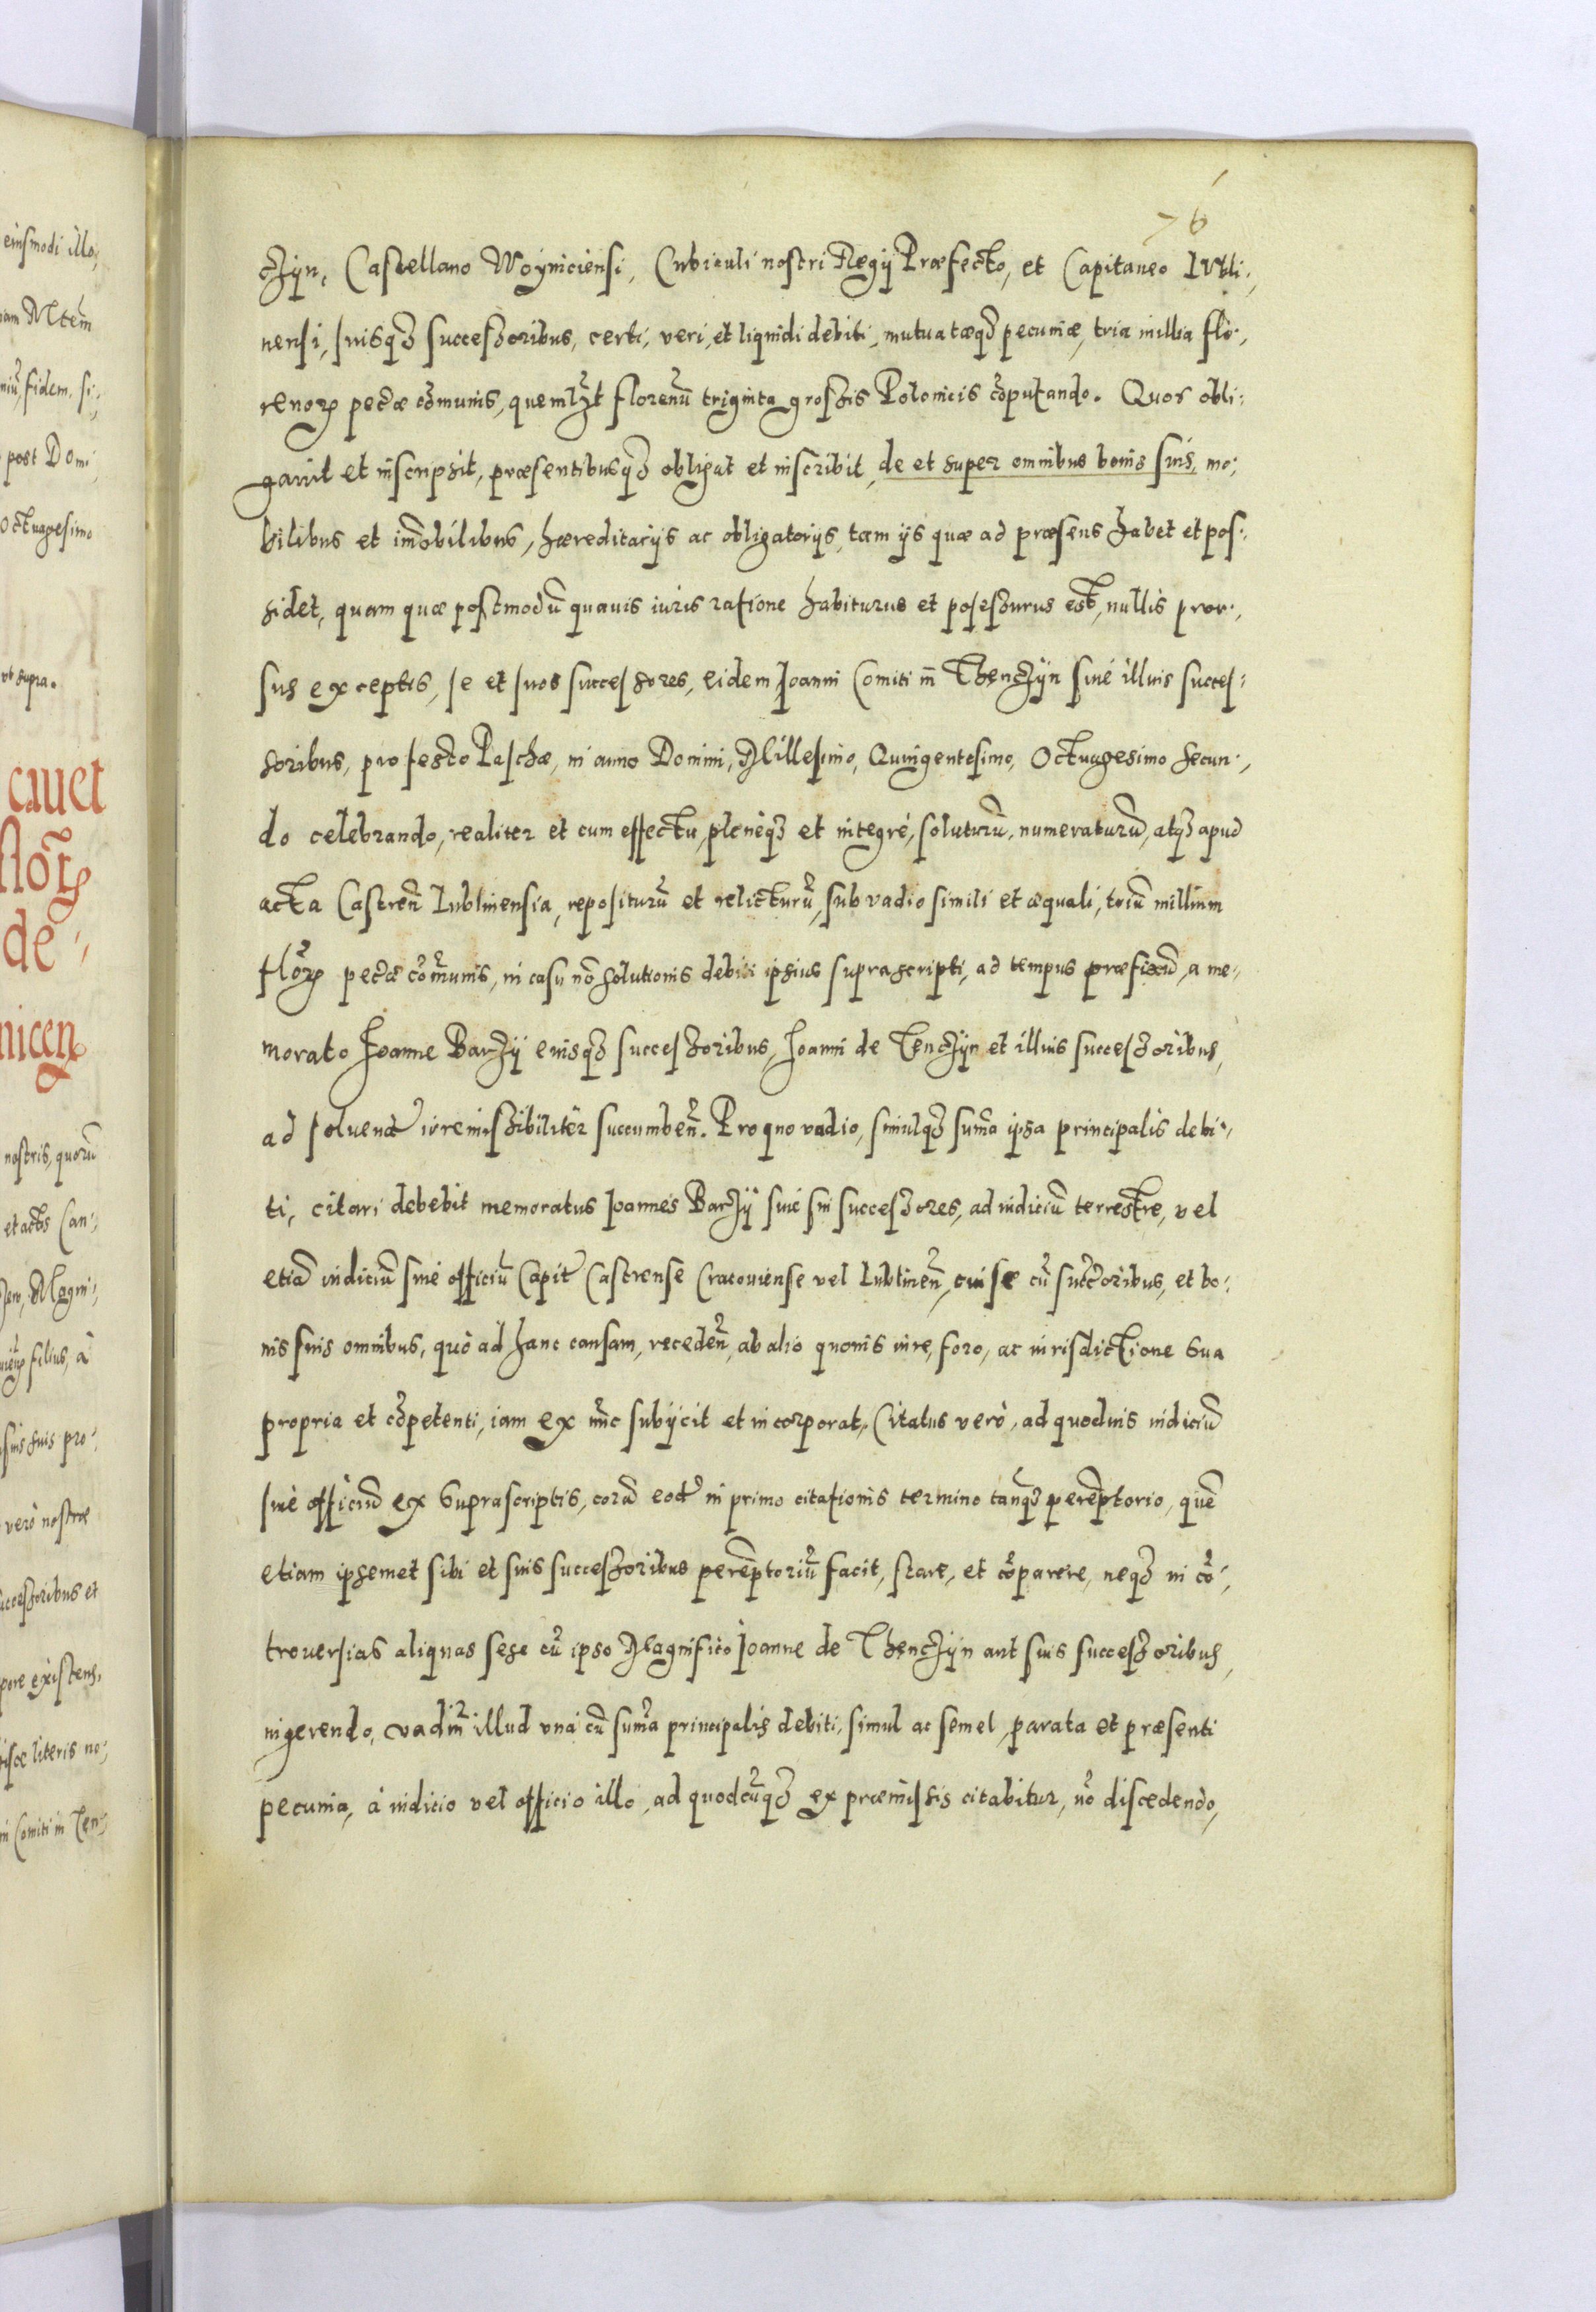 76
czÿn, Castellano Woyniciensi, Cubiculi nostri Regij Præfecto, et Capitaneo Lubli-,
nensi, suisq3 successoribus, certi, veri, et liquidi debiti, mutuatæq3 pecuniæ, tria millia flo-,
renoꝝ pec̃æ cõmunis, quemlz̃t florenũ triginta grossis Polonicis cõputando. Quos obli-
gauit et inscripsit, præsentibusq3 obligat et inscribit, de et super omnibus bonis suis, mo-
bilibus et im̃obilibus, hæreditarijs ac obligatorijs, tam ijs quæ ad præsens habet et pos-
sidet, quam quæ postmodũ quauis iuris ratione habiturus et possessurus est, nullis pror-,
sus exceptis, se et suos successores, eidem Joanni Comiti in Thenczÿn siue illius succes-
soribus, pro festo Paschæ, in anno Domini, Millesimo, Quingentesimo, Octuagesimo secun-,
do celebrando, realiter et cum effectu, pleneq3 et integrè, soluturũ, numeraturũ, atq3 apud
acta Castreñ Lublinensia, repositurũ et relicturũ, sub vadio simili et æquali, triũ millium
floꝝ pec̃æ cõmunis, in casu nõ solutionis debiti ipsius suprascripti, ad tempus præfixũ, a me-
morato Joanne Barzÿ eiusq3 successoribus, Joanni de Tenczÿn et illius successoribus,
ad soluenđ irremissibiliter succumbeñ. Pro quo vadio, simulq3 sum̃a ipsa principalis debi-,
ti, citari debebit memoratus Joannes Barzÿ siue sui successores, ad iudiciũ terrestre, vel
etiã iudiciũ siue officiũ Capit̃ Castrense Cracouiense vel Lublineñ, cui se cũ suc̃c̃oribus, et bo-
nis suis omnibus, quò ad hanc causam, recedeñ, ab alio quouis iure, foro, ac iurisdictione sua
propria et cõpetenti, iam ex nũc subijcit et incorporat. Citatus verò, ad quoduis iudiciũ
siuè officiũ ex suprascriptis, corã eođ in primo citationis termino tanq̃3 perem̃ptorio, quẽ
etiam ipsemet sibi et suis successoribus perem̃ptoriũ facit, stare, et cõparere, neq3 in cõ-,
trouersias aliquas sese cũ ipso Magnifico Joanne de Thenczÿn aut suis successoribus,
ingerendo, vadiũ illud vnà cũ sum̃a principalis debiti, simul ac semel, parata et præsenti
pecunia, à iudicio vel officio illo, ad quodcũq3 ex præmissis citabitur, nõ discedendo,